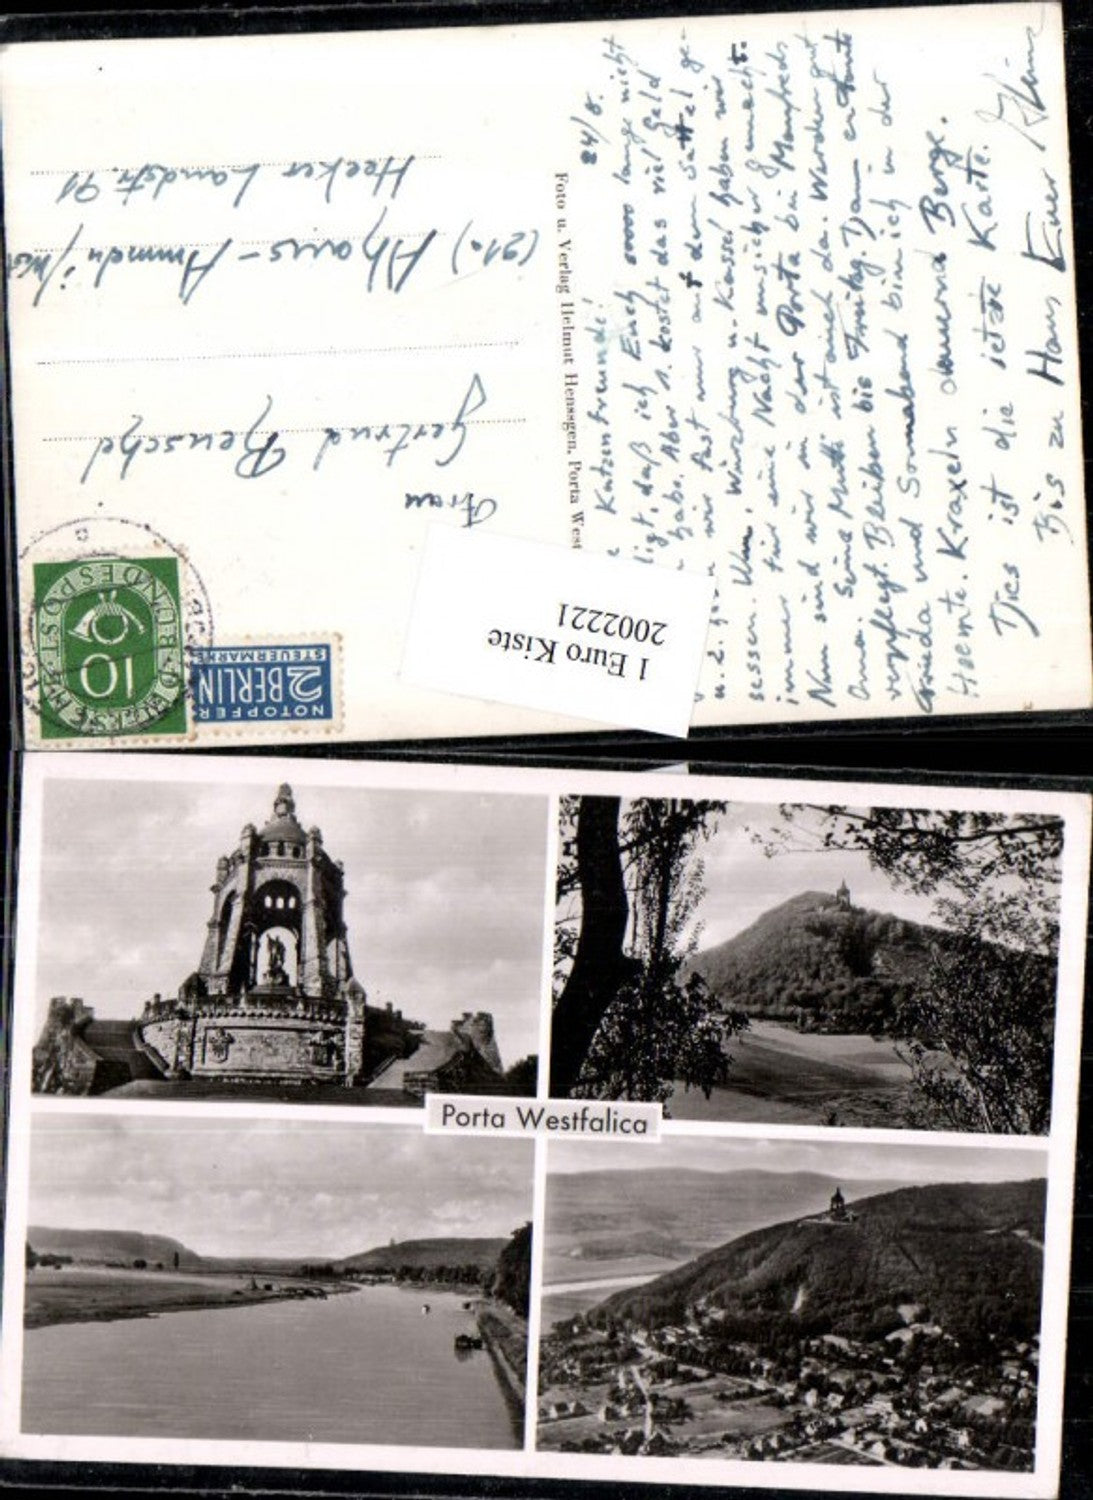 24/8.
Katzenfreunde!
daß ich Euch soooo lange nicht
habe. Aber 1. kostet das viel Geld
u. 2. wir fast nur auf dem Sattel ge-
sessen. Ulm, Würzburg u. Kassel haben wir
immer für eine Nacht unsicher gemacht.
Nun sind wir in der Porta bei Manfreds
Oma. Seine Mutti ist auch da. Werden gut
verpflegt. Bleiben bis Freitag. Dann
und Sonnabend bin ich in der
Heemte. Kraxeln dauernd Berge.
Dies ist die letzte Karte.
Bis zu Haus Euer Heinz
Foto u. Verlag Helmut Henssgen, Porta West
Frau
Gertrud Reuschel
(21a) Ahaus-Ammeln/West
Heeker Landstr. 91
DEUTSCHE BUNDESPOST
10
NOTOPFER
2 BERLIN
STEUERMARKE
1 Euro Kiste
2002221
Porta Westfalica